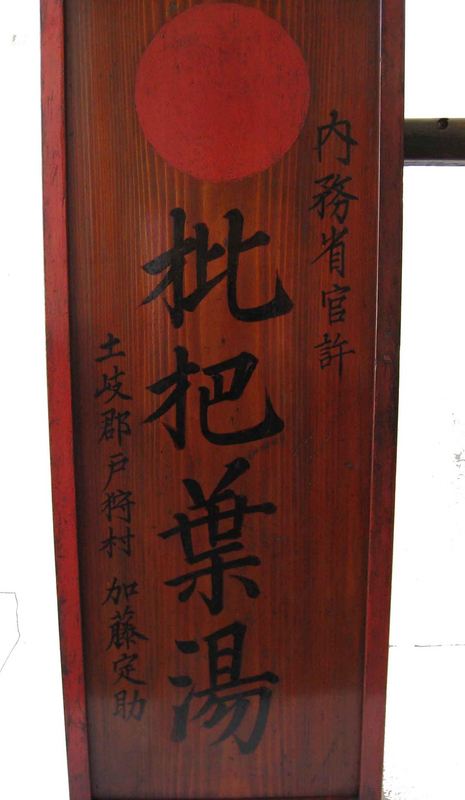 内務省官許
枇杷葉湯
土岐郡戸狩村 加藤定助